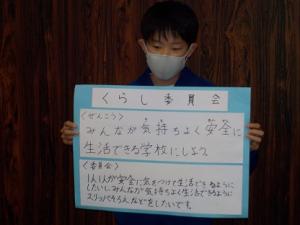 くらし委員会
<ぜんこう>
みんなが気持ちよく安全に
生活できる学校にしよう
<委員会>
1人1人が安全に気をつけて生活できるように
したいし、みんなが気持ちよく生活できるように
スリッパそろえなどをしたいです。